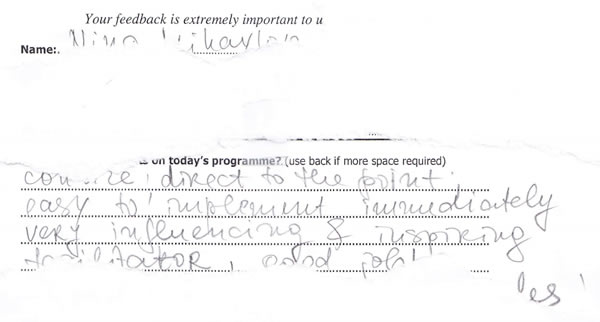 Your feedback is extremely important to u
Name:. Nina
on today's programme? (use back if more space required)
direct to the point.
easy to implement immediately
very influencing & inspiring
good job!